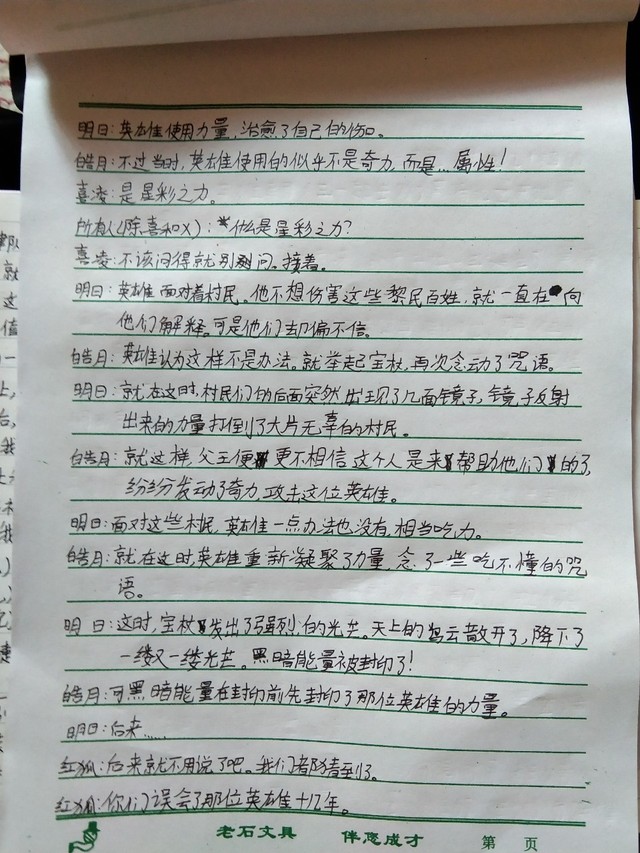 明日:英雄使用力量,治愈了自己的伤口。
皓月:不过当时,英雄使用的似乎不是奇力,而是…属性!
喜凌:是星彩之力。
所有人(除喜和X):什么是星彩之力?
喜凌:不该问得就别问。接着。
明日:英雄面对着村民。他不想伤害这些黎民百姓,就一直在向
他们解释。可是他们却偏不信。
皓月:英雄认为这样不是办法。就举起宝杖,再次念动了咒语。
明日:就在这时,村民们的后面突然出现了几面镜子,镜子反射
出来的力量打倒了大片无辜的村民。
皓月:就这样,父王便更不相信这个人是来帮助他们的了,
纷纷发动了奇力,攻击这位英雄。
明日:面对这些村民,英雄一点办法也没有,相当吃力。
皓月:就在这时,英雄重新凝聚了力量,念了一些吃不懂的咒
语。
明日:这时,宝杖发出了强烈的光芒。天上的乌云散开了,降下了
一缕又一缕光芒。黑暗能量被封印了!
皓月:可黑暗能量在封印前先封印了那位英雄的力量。
明日:后来……
红狐:后来就不用说了吧。我们都猜到了。
红狐:你们误会了那位英雄十几年。
老石文具 伴您成才 第 页
就
这
信
一
上,
后,
我